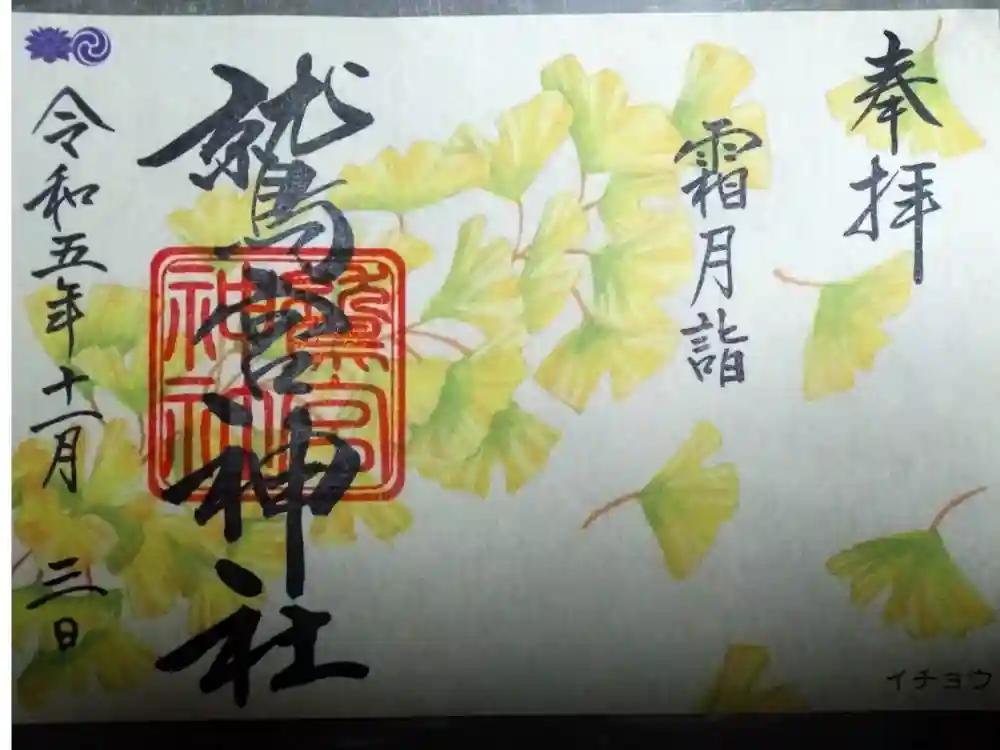 奉拝
霜月詣
鷲宮神社
鷲宮
神社
令和五年十一月 三日
イチョウ